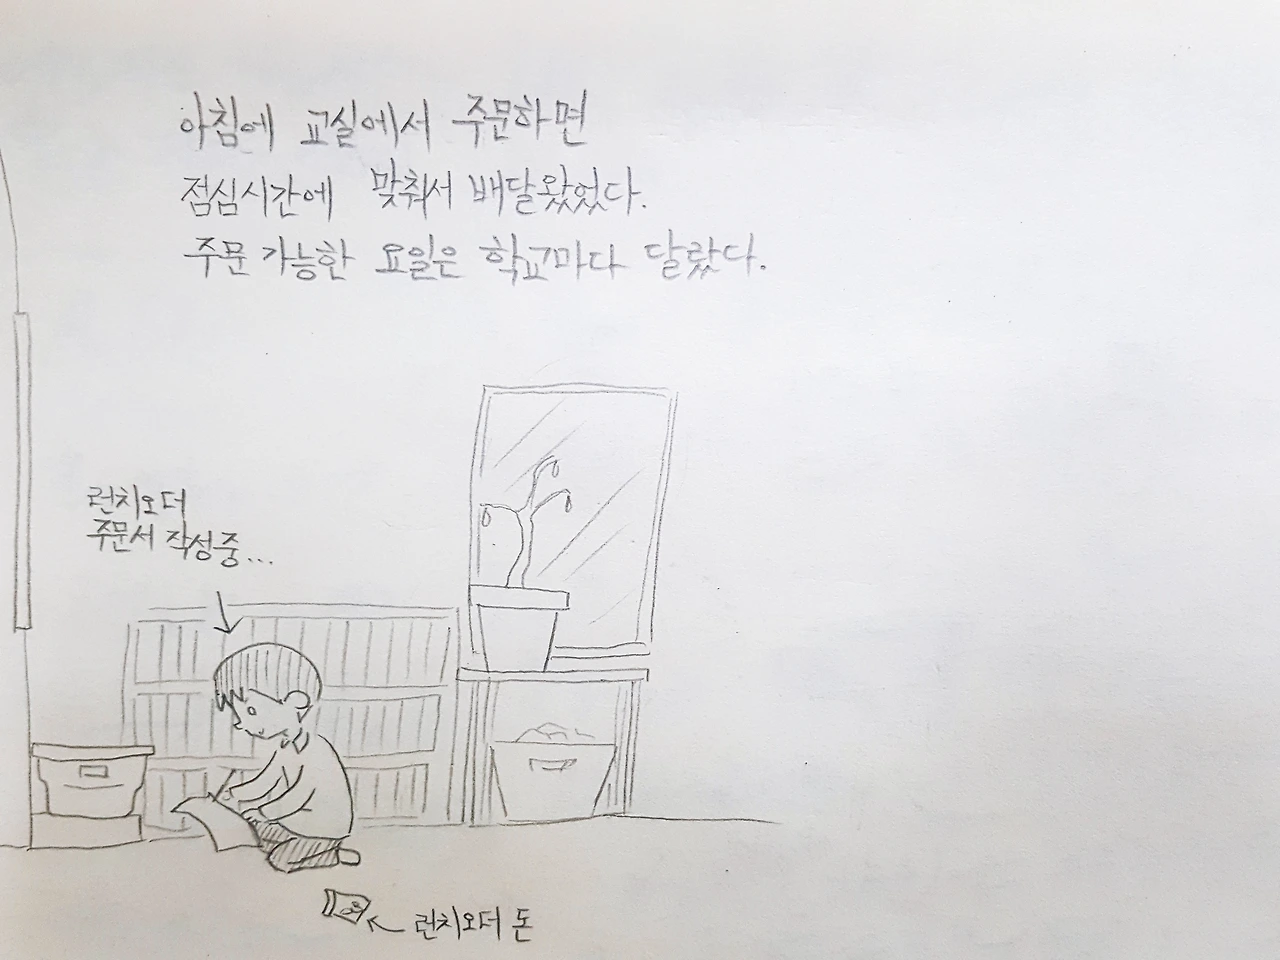 아침에 교실에서 주문하면
점심시간에 맞춰서 배달왔었다.
주문 가능한 요일은 학교마다 달랐다.
런치오더
주문서 작성중...
런치오더 돈